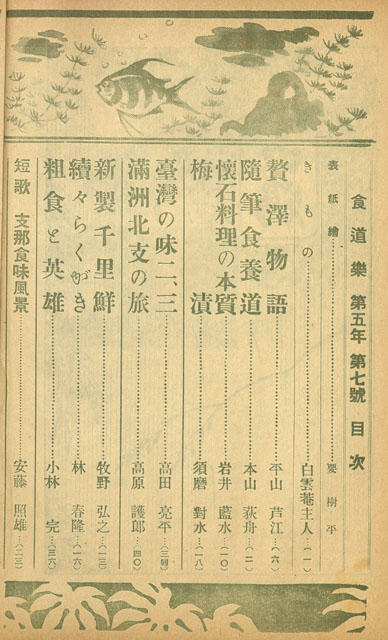 食道樂 第五年 第七號 目次
表紙繪……………………樹平
きもの……………………白雲菴主人…(一)
贅澤物語……………………平山 芦江…(六)
隨筆食養道……………………本山 荻舟…(二)
懷石料理の本質……………………岩井 藍水…(一〇)
梅漬……………………須磨 對水…(一八)
臺灣の味二、三……………………高田 亮平…(三四)
滿洲北支の旅……………………高原 護郎…(四〇)
新製千里鮮……………………牧野 弘之…(二三)
續々らくがき……………………林 春隆…(一六)
粗食と英雄……………………小林 完…(三六)
短歌 支那食味風景……………………安藤 照雄…(二三)